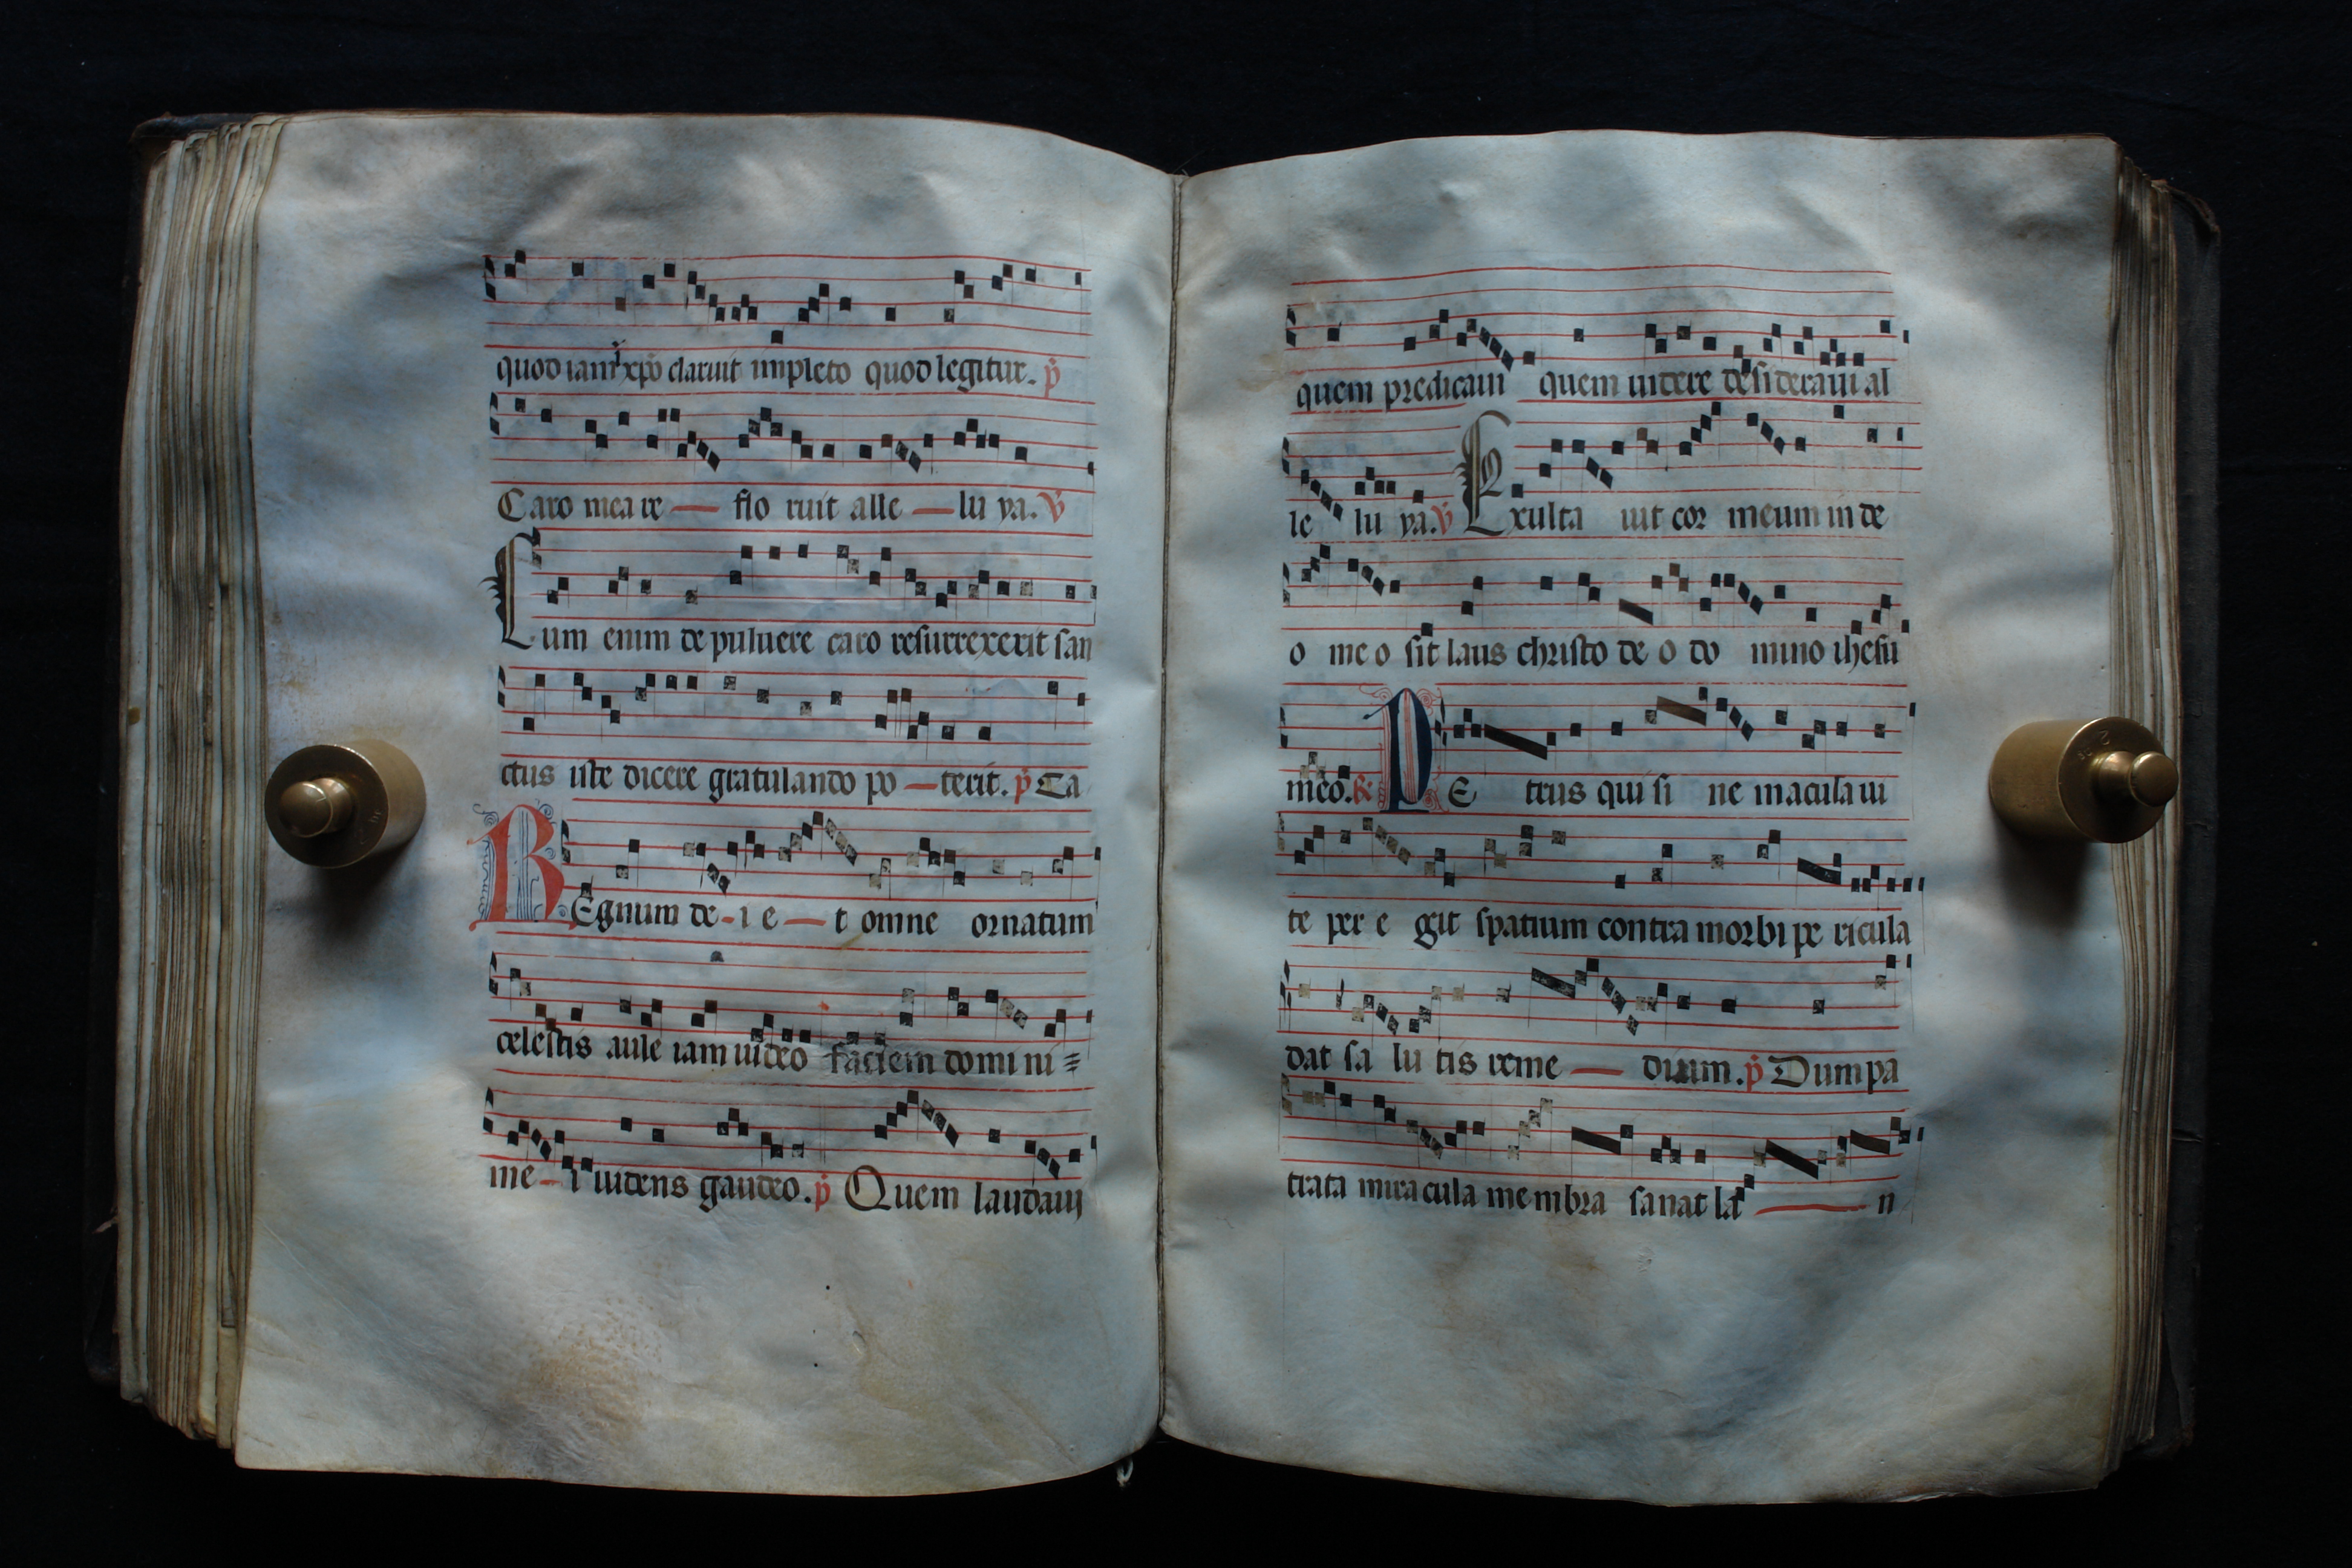 quod iam xpo claruit impleto quod legitur. p
Caro mea re flo ruit alle lu ya. v
Cum enim de puluere caro resurrexerit san
ctus iste dicere gratulando po terit. p Ca
REgnum de i e t omne ornatum
celestis aule iam uideo faciem domi ni
me i uidens gaudeo. p Quem laudaui
quem predicaui quem uidere desideraui al
le lu ya. v Exulta uit cor meum in de
o me o sit laus christo de o do mino ihesu
meo. R PE trus qui si ne macula ui
te per e git spatium contra morbi pe ricula
dat sa lu tis reme dium. p Dum pa
trata mira cula me mbra sanat la n